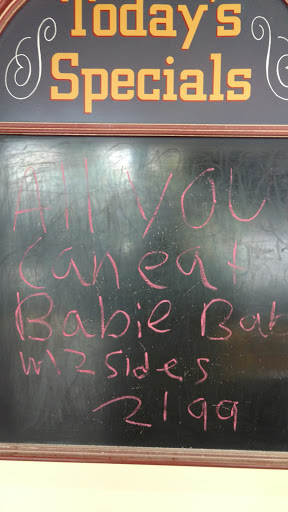 Today's
Specials
All you
can eat
Babie Bab
w/2 sides
2199